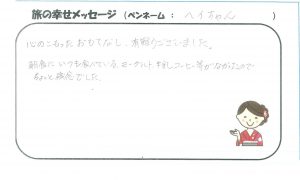 旅の幸せメッセージ (ペンネーム : へイちゃん )
心のこもったおもてなし、有難うございました。
朝食にいつも食べている、ヨーグルト、牛乳、コーヒー等がなかたので
ちょっと残念でした。